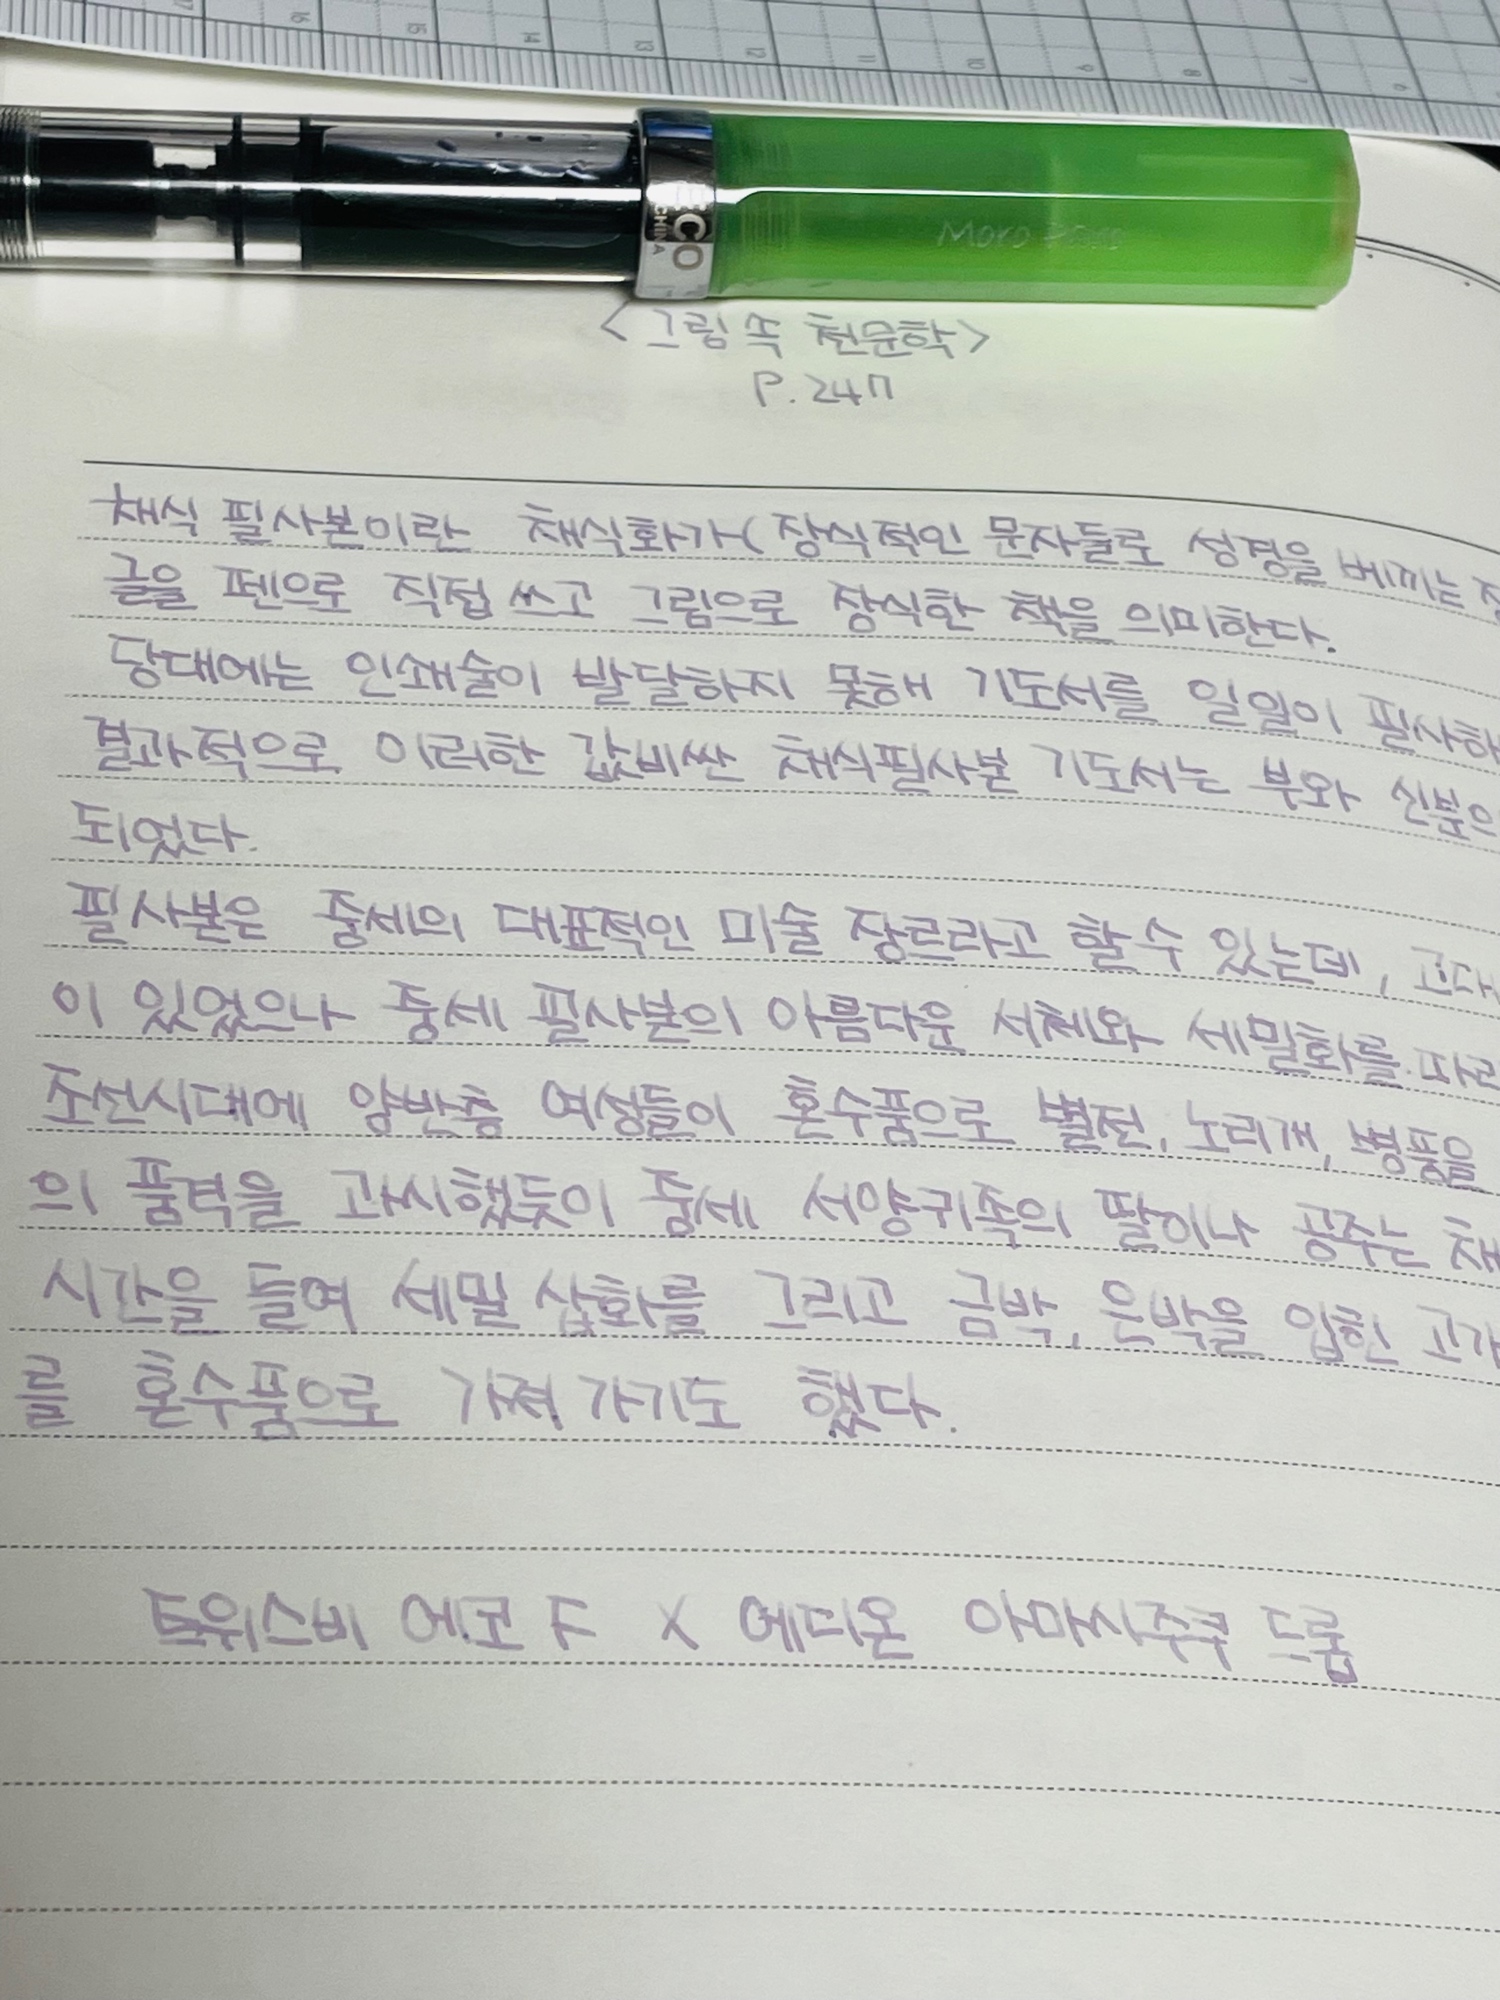 16
15
14
13
12
11
10
9
8
7
6
ECO
CHINA
Moro
<그림 속 천문학>
P.247
채식 필사본이란 채식화가(장식적인 문자들로 성경을 베끼는
글을 펜으로 직접 쓰고 그림으로 장식한 책을 의미한다.
당대에는 인쇄술이 발달하지 못해 기도서를 일일이 필사하
결과적으로 이러한 값비싼 채식필사본 기도서는 부와 신분의
되었다.
필사본은 중세의 대표적인 미술 장르라고 할 수 있는데, 고대
이 있었으나 중세 필사본의 아름다운 서체와 세밀화를 따라
조선시대에 양반층 여성들이 혼수품으로 별전, 노리개, 병풍을
의 품격을 과시했듯이 중세 서양귀족의 딸이나 공주는 채
시간을 들여 세밀 삽화를 그리고 금박, 은박을 입힌 고가
를 혼수품으로 가져 가기도 했다.
트위스비 에코 F X 에디온 아마시주쿠 드롭